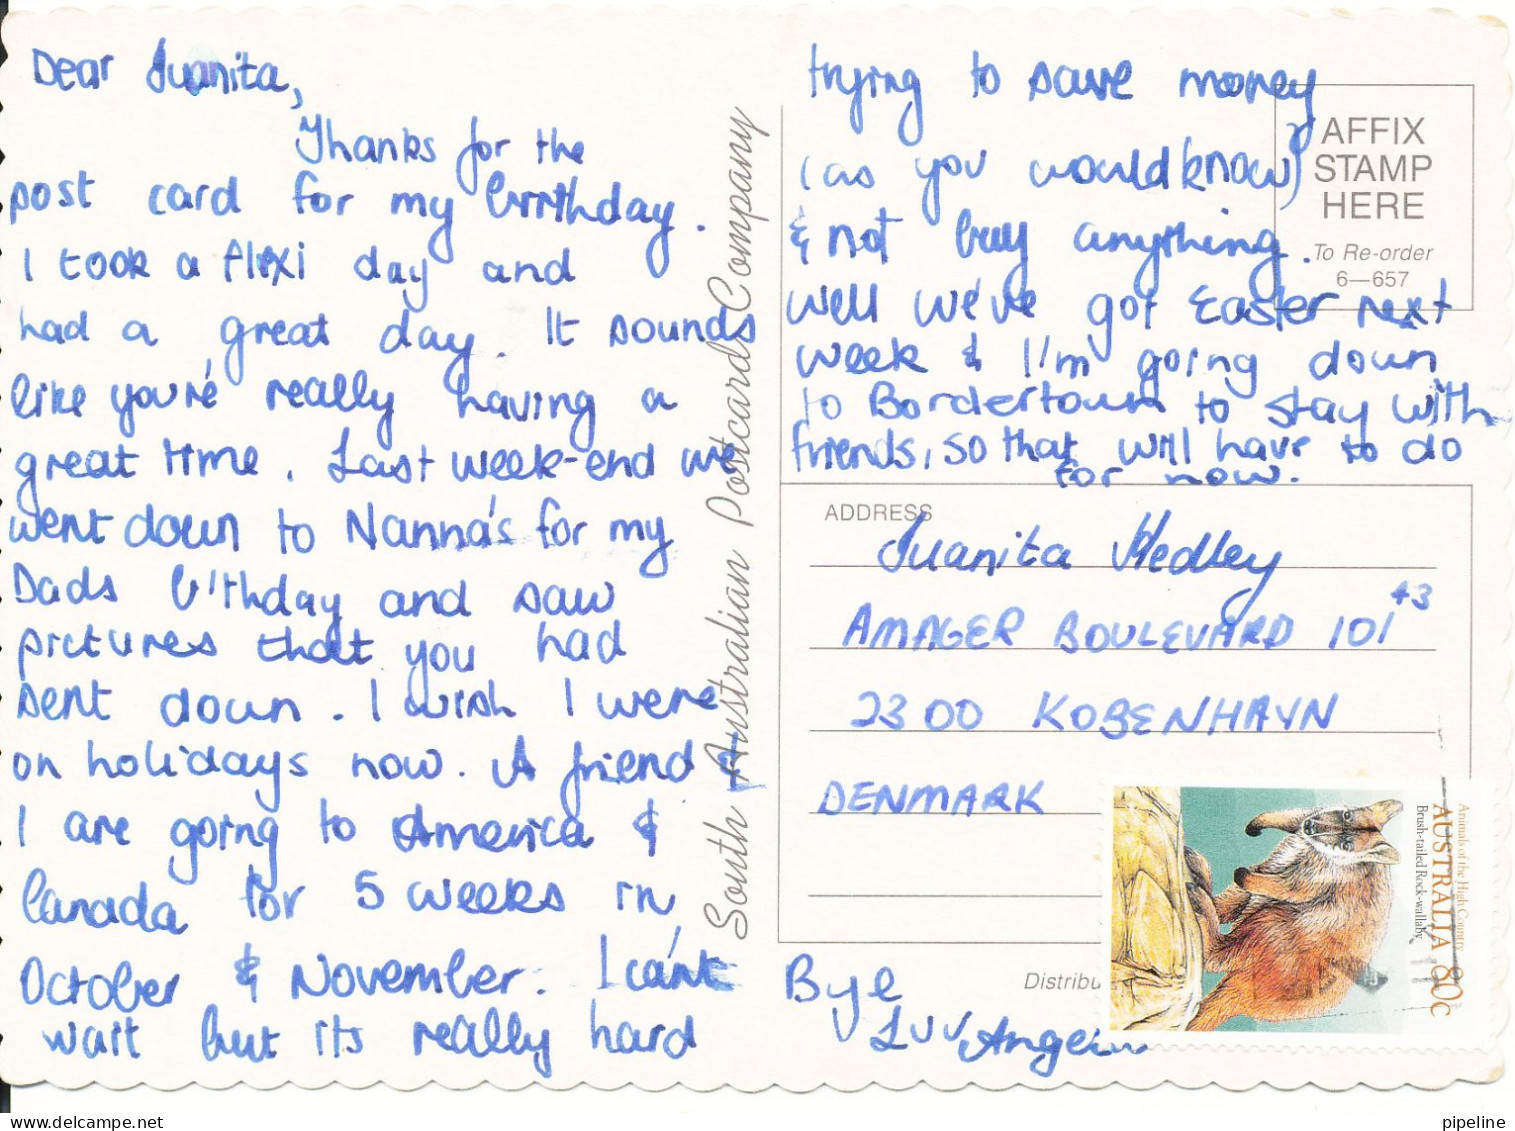 Dear Juanita,
Thanks for the
post card for my birthday.
I took a flexi day and
had a great day. It sounds
like you're really having a
great time. Last week-end we
went down to Nanna's for my
Dads birthday and saw
pictures that you had
sent down. I wish I were
on holidays now. A friend &
I are going to America &
Canada for 5 weeks in
October & November. I can't
wait but its really hard
South Australian Postcards Company
trying to save money
(as you would know)
& not buy anything.
Well we've got Easter next
week & I'm going down
to Bordertown to stay with
friends, so that will have to do
for now.
AFFIX
STAMP
HERE
To Re-order
6—657
ADDRESS
Juanita Hedley
AMAGER BOULEVARD 101 43
2300 KOBENHAVN
DENMARK
Animals of the High Country
AUSTRALIA 80c
Brush-tailed Rock-wallaby
Distribu
Bye
Luv
pipeline